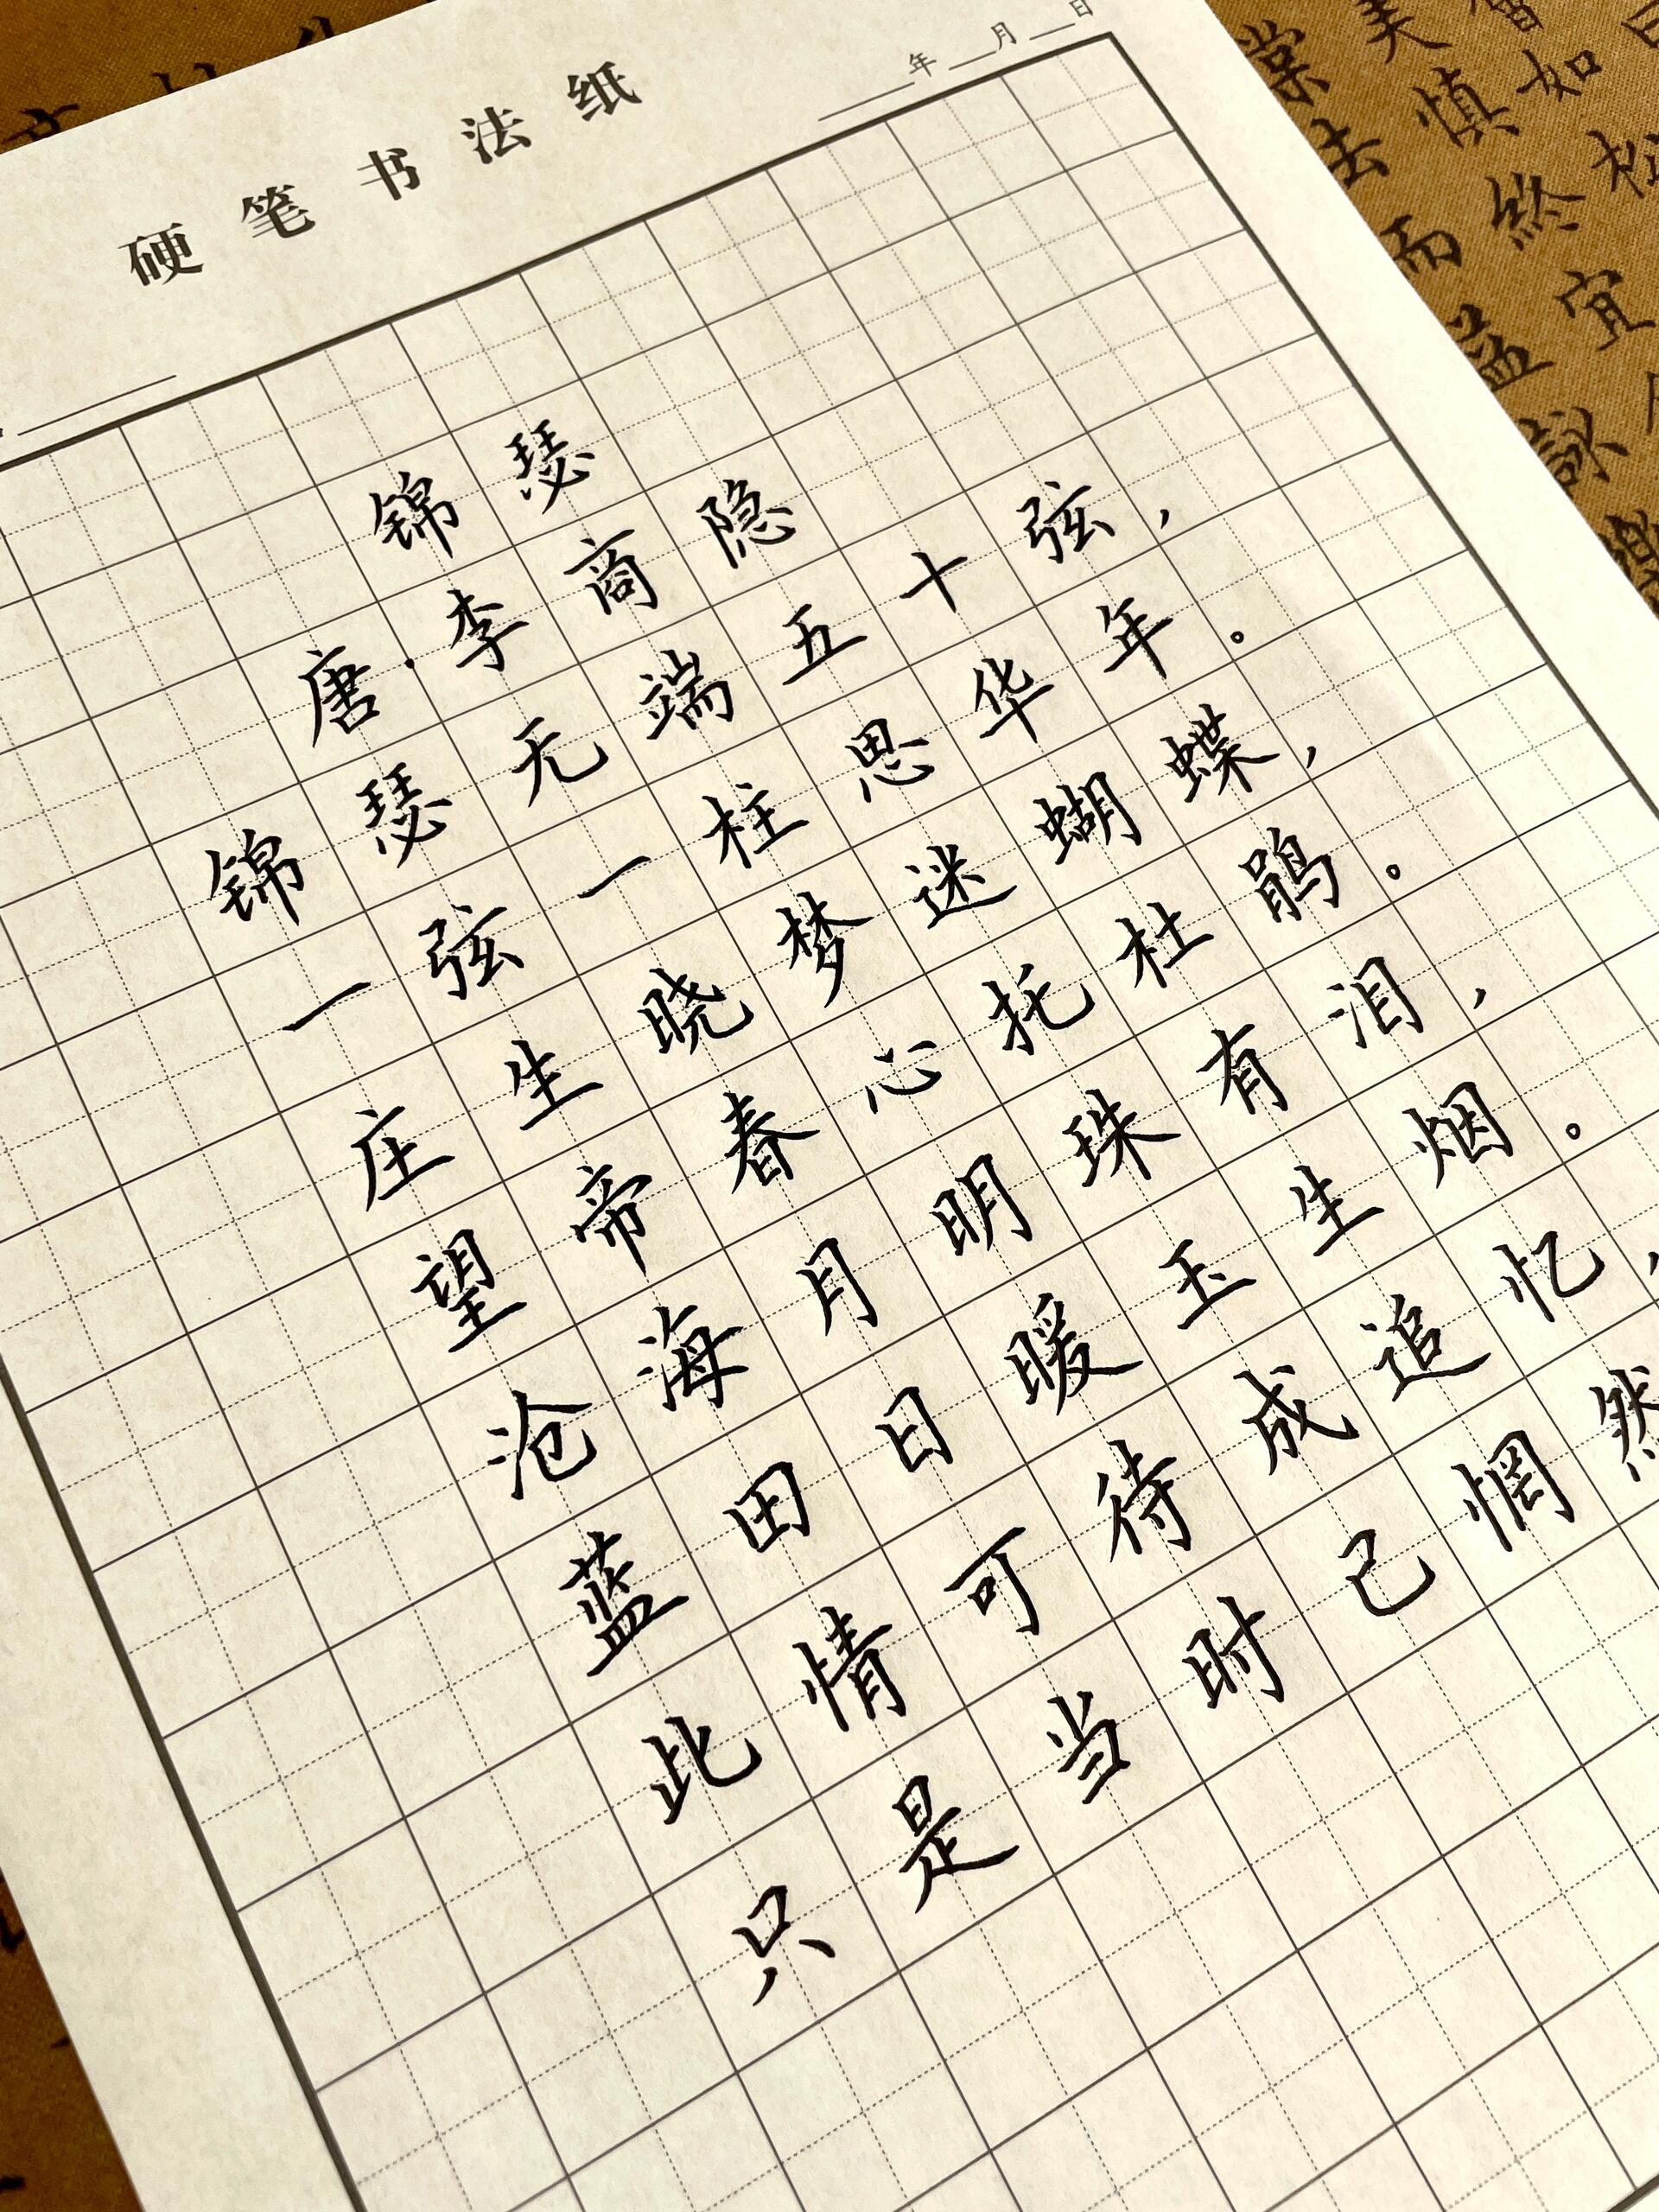 硬笔书法纸
年 月 日
锦瑟
唐·李商隐
锦瑟无端五十弦,
一弦一柱思华年。
庄生晓梦迷蝴蝶,
望帝春心托杜鹃。
沧海月明珠有泪,
蓝田日暖玉生烟。
此情可待成追忆,
只是当时己惘然
棠去而益詠
美慎終宜
如松